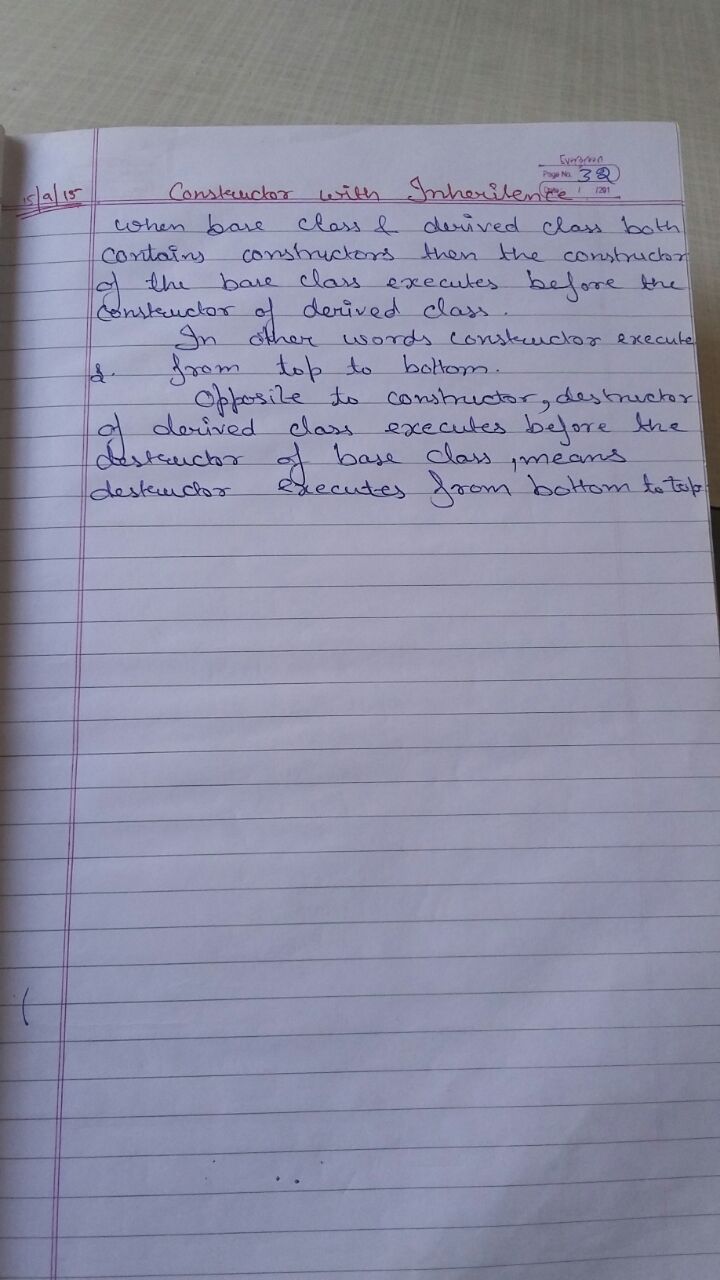 Evergreen
Page No. 32
Date / /201
15/9/15 Constructor with Inheritence
when base class & derived class both
contains constructors then the constructor
of the base class executes before the
constructor of derived class.
In other words constructor execute
&. from top to bottom.
Opposite to constructor, destructor
of derived class executes before the
destructor of base class, means
destructor executes from bottom to top